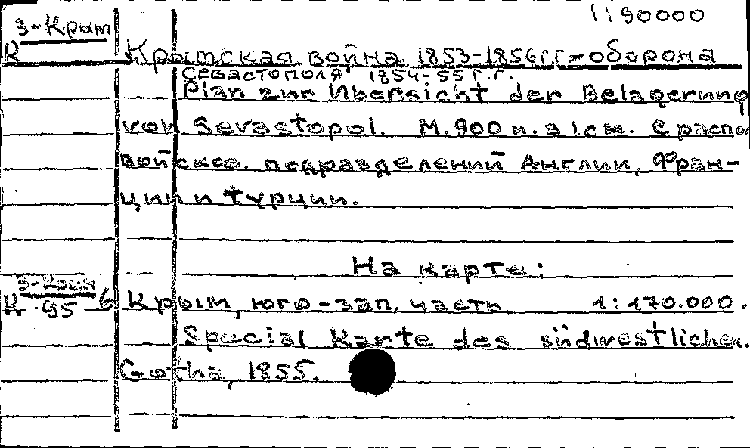 1:90000
З-Крым
К
Крымская война 1853-1856гг.-оборона
Севастополя 1854-55 г.г.
Plan zur Übersicht der Belagerung
von Sevastopol. М. 900 м. в 1 см. С распол.
войсков. подразделений Англии, Фран-
ции и Турции.
На карте:
З-Крым
К-95 6 Крым, юго-зап. часть 1:170.000.
Special Karte des südwestlichen.
Gotha, 1855.